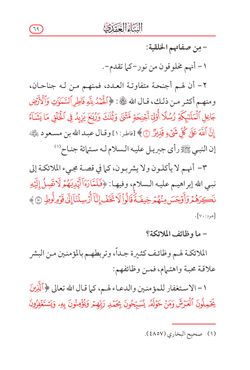 ٦٩
البناء العقدي
- من صفاتهم الخلقية:
١- أنهم مخلوقون من نور -كما تقدم-.
٢- أن لهم أجنحة متفاوتة العدد، فمنهم من له جناحان،
ومنهم أكثر من ذلك، قال الله ﷻ: ﴿ٱلْحَمْدُ لِلَّهِ فَاطِرِ ٱلسَّمَٰوَٰتِ وَٱلْأَرْضِ
جَاعِلِ ٱلْمَلَٰٓئِكَةِ رُسُلًا أُو۟لِىٓ أَجْنِحَةٍ مَّثْنَىٰ وَثُلَٰثَ وَرُبَٰعَ يَزِيدُ فِى ٱلْخَلْقِ مَا يَشَآءُ
إِنَّ ٱللَّهَ عَلَىٰ كُلِّ شَىْءٍ قَدِيرٌ ١﴾ [فاطر: ١] وقال عبد الله بن مسعود ﷺ
إن النبي ﷺ رأى جبريل عليه السلام له ستمائة جناح(١)
٣- أنهم لا يأكلون ولا يشربون، كما في قصة مجيء الملائكة إلى
نبي الله إبراهيم عليه السلام، وفيها: ﴿فَلَمَّا رَءَآ أَيْدِيَهُمْ لَا تَصِلُ إِلَيْهِ
نَكِرَهُمْ وَأَوْجَسَ مِنْهُمْ خِيفَةً قَالُوا۟ لَا تَخَفْ إِنَّآ أُرْسِلْنَآ إِلَىٰ قَوْمِ لُوطٍ ٧٠﴾
[هود: ٧٠].
- ما وظائف الملائكة؟
الملائكة لهم وظائف كثيرة جداً، وتربطهم بالمؤمنين من البشر
علاقة محبة واهتمام، فمن وظائفهم:
١- الاستغفار للمؤمنين والدعاء لهم، كما قال الله تعالى ﴿ٱلَّذِينَ
يَحْمِلُونَ ٱلْعَرْشَ وَمَنْ حَوْلَهُۥ يُسَبِّحُونَ بِحَمْدِ رَبِّهِمْ وَيُؤْمِنُونَ بِهِۦ وَيَسْتَغْفِرُونَ
(١) صحيح البخاري (٤٨٥٧)